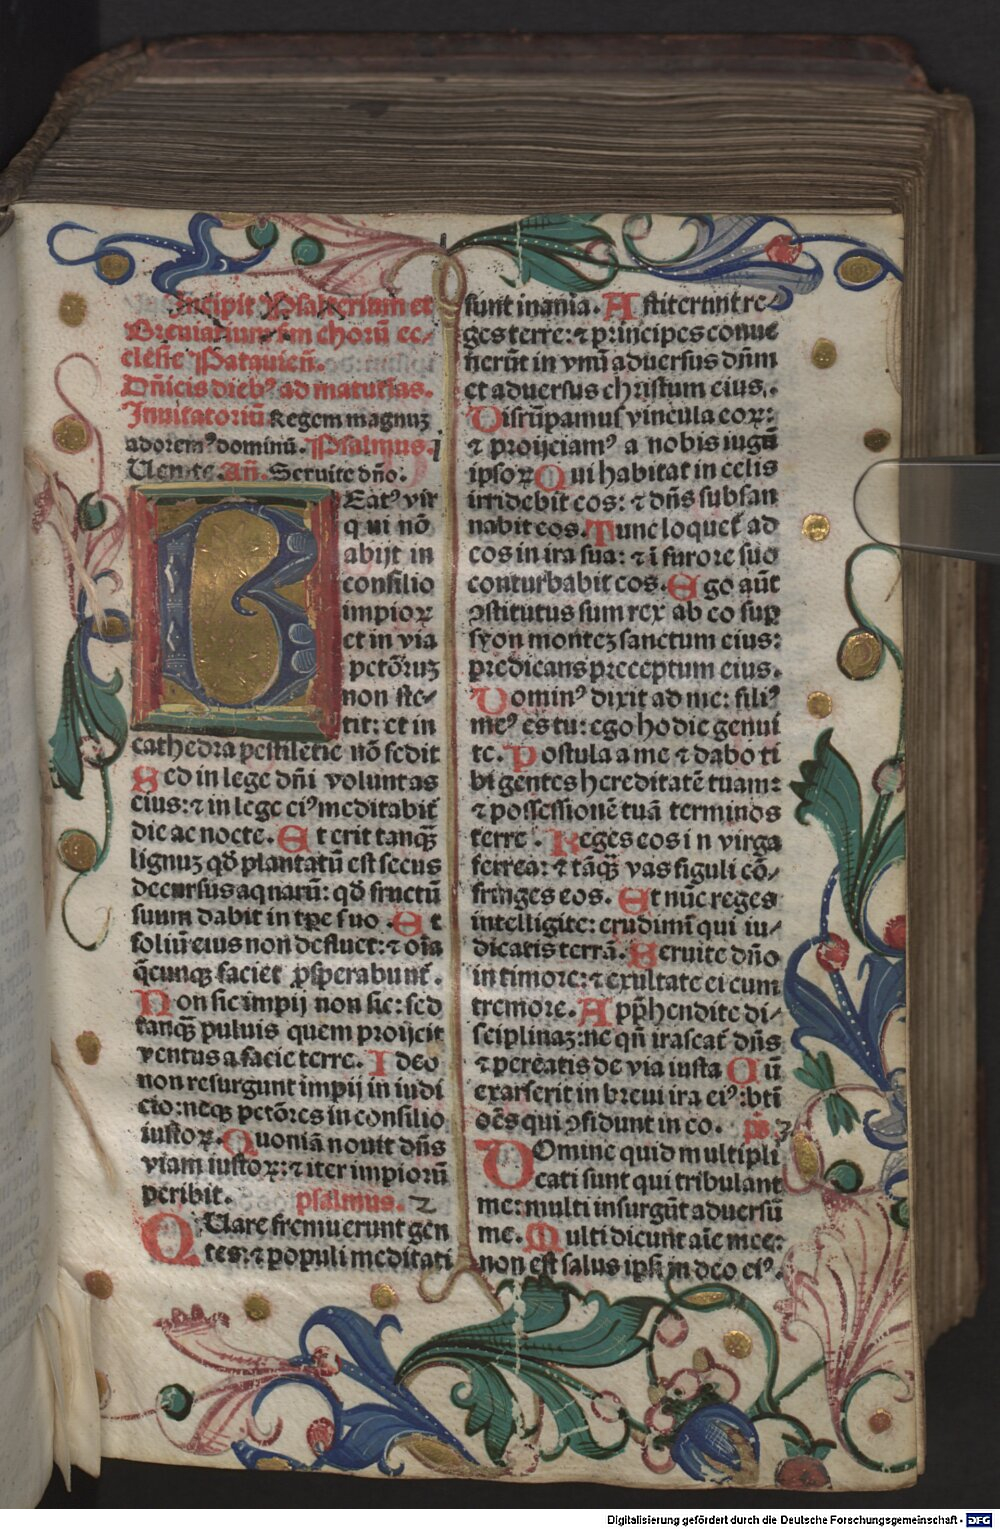 Incipit Psalterium et
Breuiarium scḋm chorū ec⸗
clesie Patauieñ.
Dñicis diebꝰ ad matutías.
Inuitatoriū Regem magnuꝫ
adoremꝰ dominū. Psalmus. 1
Uenite. Añ. Seruite dño.
BEatꝰ vir
qui nō
abijt in
consilio
impioꝝ
et in via
petōruꝫ
non ste⸗
tit: et in
cathedra pestilētie nō sedit
Sed in lege dñi voluntas
eius: ⁊ in lege eiꝰ meditabit᷑
die ac nocte. Et erit tanqꝫ̄
lignuꝫ qḋ plantatū est secus
decursus aquarū: qḋ fructū
suum dabit in tꝑe suo. Et
foliū eius non defluet: ⁊ oīa
q̄cunqꝫ faciet ꝓsperabunt᷑.
Non sic impij non sic: sed
tanqꝫ̄ puluis quem proijcit
ventus a facie terre. Ideo
non resurgunt impij in iudi
cio: neqꝫ petōres in consilio
iustoꝝ. Quoniā nouit dñs
viam iustoꝝ: ⁊ iter impiorū
peribit. psalmus. 2
QUare fremuerunt gen
tes: ⁊ populi meditati
sunt inania. Astiterunt re⸗
ges terre: ⁊ principes conue
nerūt in vnū aduersus dñm
et aduersus christum eius.
Disrūpamus vincula eoꝝ:
⁊ proijciamꝰ a nobis iugū
ipsoꝝ Qui habitat in celis
irridebit eos: ⁊ dñs subsan
nabit eos. Tunc loquet᷑ ad
eos in ira sua: ⁊ ī furore suo
conturbabit eos. Ego aūt
ↄstitutus sum rex ab eo suꝑ
syon monteꝫ sanctum eius:
predicans preceptum eius.
Dominꝰ dixit ad me: filiꝰ
meꝰ es tu: ego hodie genui
te. Postula a me ⁊ dabo ti
bi gentes hereditatē tuam:
⁊ possessionē tuā terminos
terre. Reges eos in virga
ferrea: ⁊ tāqꝫ̄ vas figuli cō⸗
fringes eos. Et nūc reges
intelligite: erudimī qui iu⸗
dicatis terrā. Seruite dño
in timore: ⁊ exultate ei cum
tremore. Apprḣendite di⸗
sciplinaꝫ: ne qñ irascat᷑ dñs
⁊ pereatis de via iusta Cū
exarserit in breui ira eiꝰ: bti̅
oēs qui ↄfidunt in eo. p̄s 3
DOmine quid multipli
cati sunt qui tribulant
me: multi insurgūt aduersū
me. Multi dicunt aīe mee:
non est salus ipsi in deo eiꝰ.
Digitalisierung gefördert durch die Deutsche Forschungsgemeinschaft - DFG